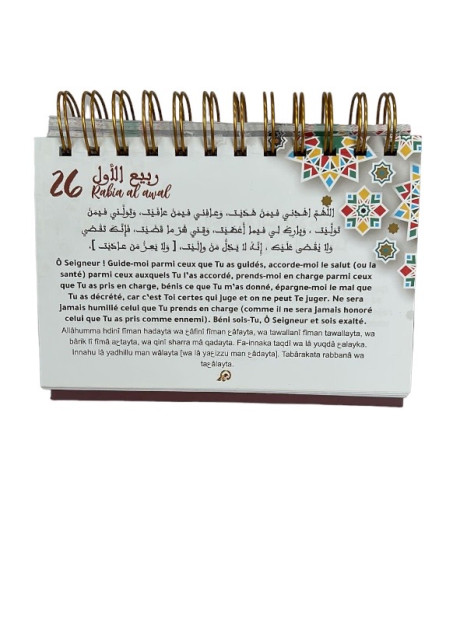 26 ربيع الأول
Rabia al awal
اللّهُمَّ اهْدِنِي فِيمَنْ هَدَيْتَ، وَعَافِنِي فِيمَنْ عَافَيْتَ، وَتَوَلَّنِي فِيمَنْ
تَوَلَّيْتَ ، وَبَارِكْ لِي فِيمَا أَعْطَيْتَ، وَقِنِي شَرَّ مَا قَضَيْتَ، فَإِنَّكَ تَقْضِي
وَلَا يُقْضَى عَلَيْكَ ، إِنَّهُ لَا يَذِلُّ مَنْ وَالَيْتَ، [ وَلَا يَعِزُّ مَنْ عَادَيْتَ ].
Ô Seigneur ! Guide-moi parmi ceux que Tu as guidés, accorde-moi le salut (ou la
santé) parmi ceux auxquels Tu l'as accordé, prends-moi en charge parmi ceux
que Tu as pris en charge, bénis ce que Tu m'as donné, épargne-moi le mal que
Tu as décrété, car c'est Toi certes qui juge et on ne peut Te juger. Ne sera
jamais humilié celui que Tu prends en charge (comme il ne sera jamais honoré
celui que Tu as pris comme ennemi). Béni sois-Tu, Ô Seigneur et sois exalté.
Allâhumma hdinî fîman hadayta wa ع̧âfinî fîman عâfayta, wa tawallanî fîman tawallayta, wa
bârik lî fîmâ aعtayta, wa qinî sharra mâ qadayta. Fa-innaka taqdî wa lâ yuqdâ عalayka.
Innahu lâ yadhillu man wâlayta [wa lâ yaعizzu man عâdayta]. Tabârakata rabbanâ wa
taعâlayta.